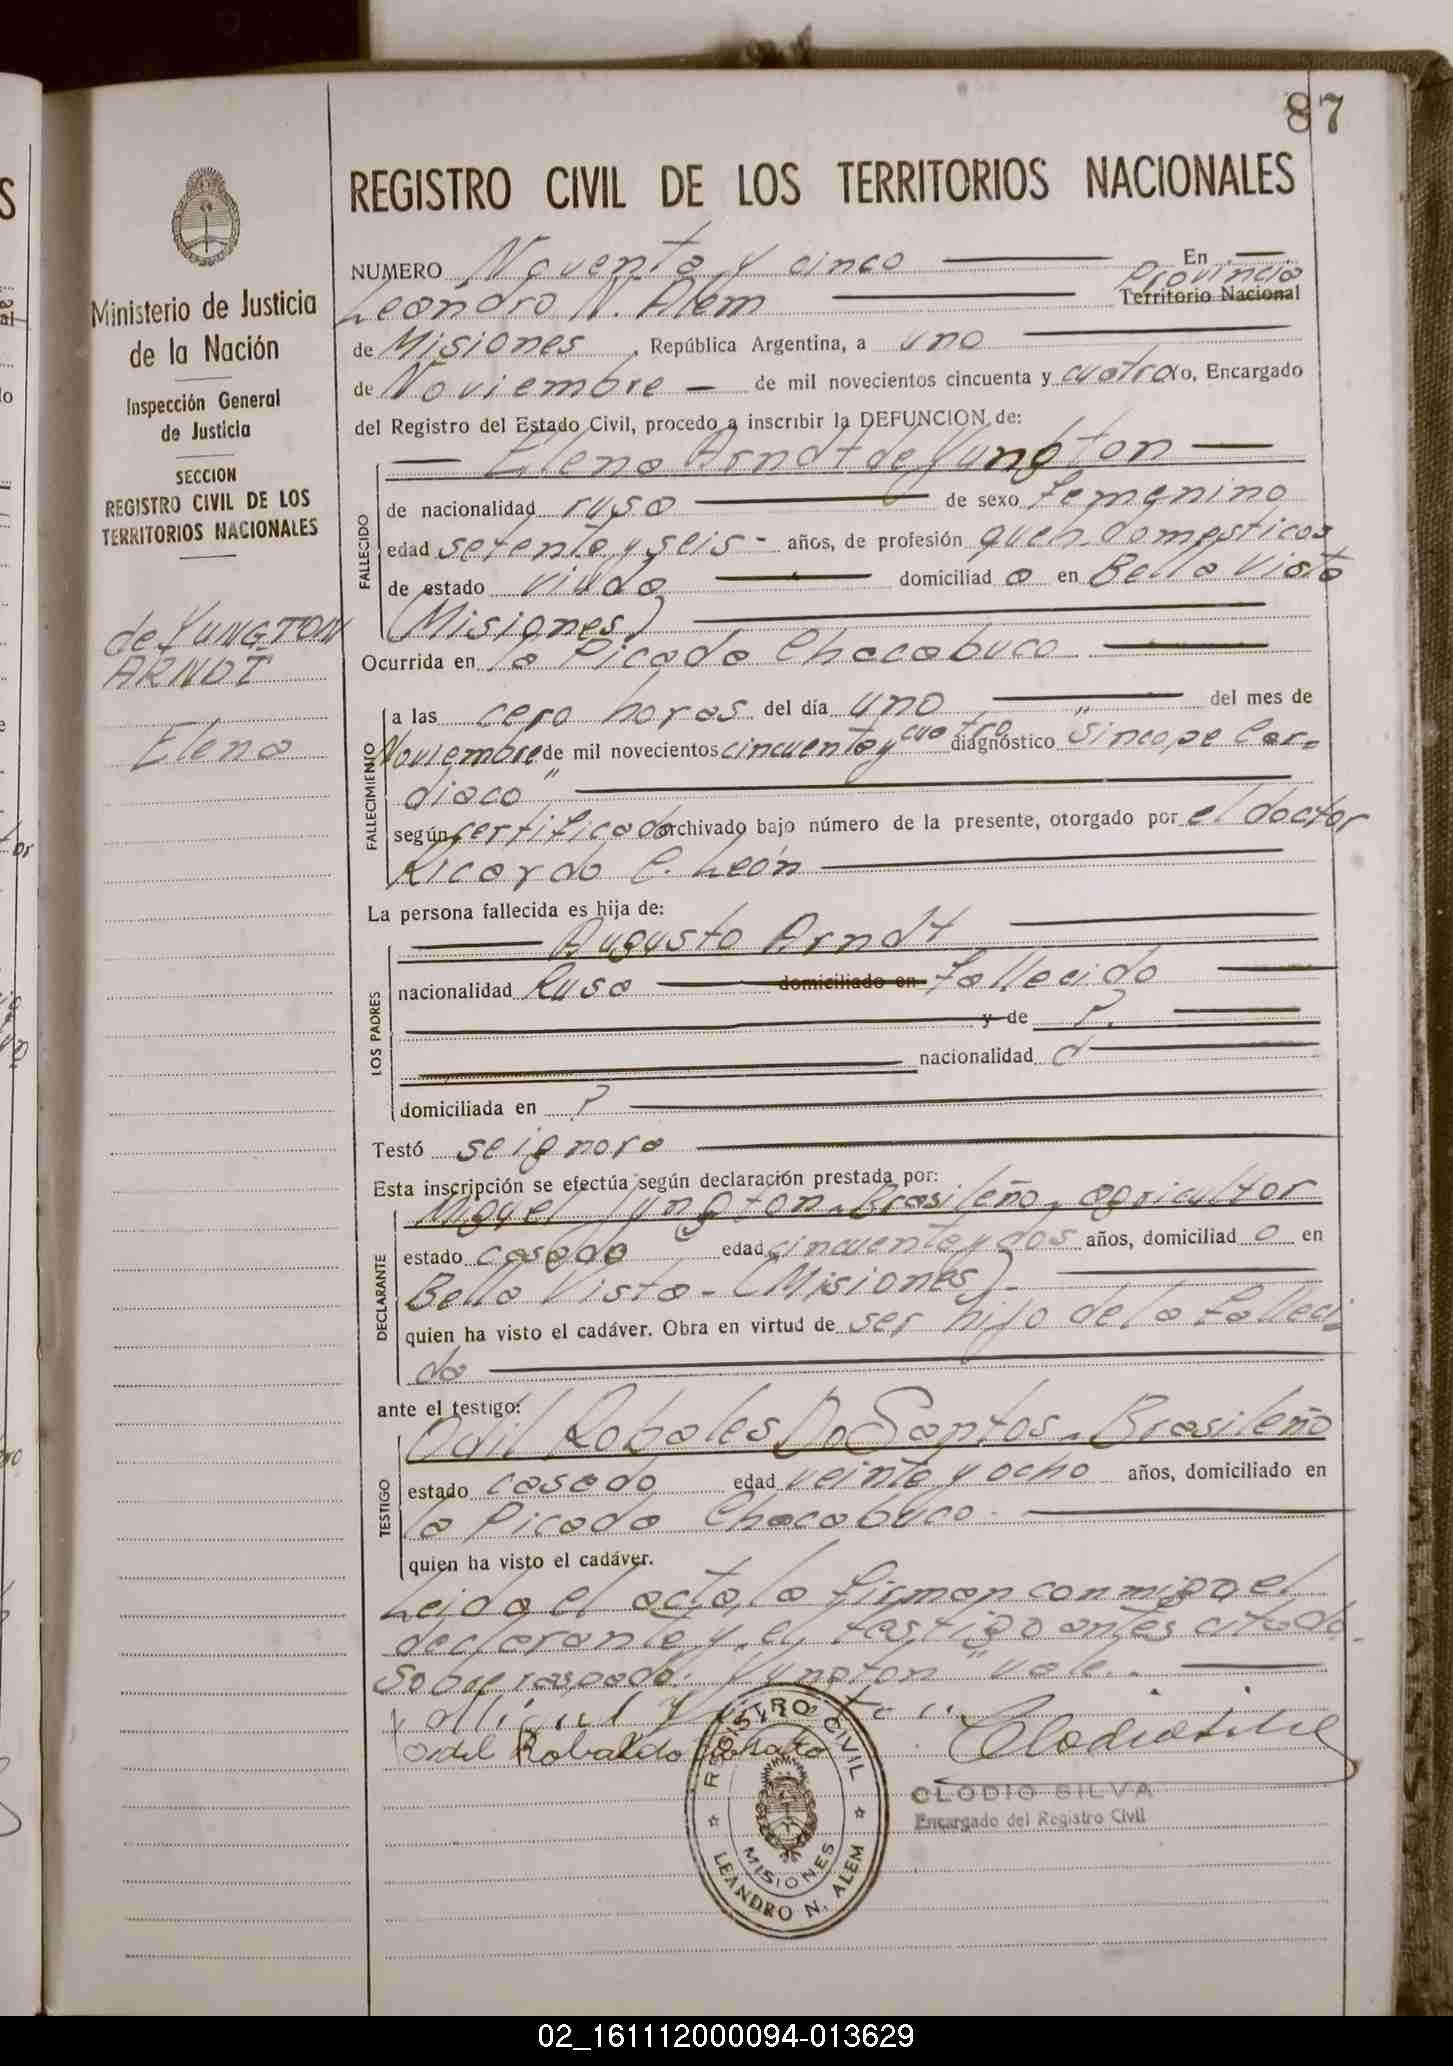 87
REGISTRO CIVIL DE LOS TERRITORIOS NACIONALES
Ministerio de Justicia
de la Nación
Inspección General
de Justicia
SECCION
REGISTRO CIVIL DE LOS
TERRITORIOS NACIONALES
de YUNGTON
ARNDT
Elena
NUMERO Noventa y cinco En
Leandro N. Alem Provincia Territorio Nacional
de Misiones, República Argentina, a uno
de Noviembre de mil novecientos cincuenta y cuatro yo, Encargado
del Registro del Estado Civil, procedo a inscribir la DEFUNCION de:
Elena Arndt de Yungton
FALLECIDO
de nacionalidad rusa de sexo femenino
edad setenta y seis años, de profesión queh. domesticos
de estado viuda domiciliad a en Bella Vista
(Misiones)
Ocurrida en la Picada Chacabuco
FALLECIMIENTO
a las cero horas del día uno del mes de
Noviembre de mil novecientos cincuenta y cuatro diagnóstico "Sincope Car-
diaco"
según certificado archivado bajo número de la presente, otorgado por el doctor
Ricardo C. León
La persona fallecida es hija de:
LOS PADRES
Augusto Arndt
nacionalidad Rusa domiciliado en fallecido
y de ?
nacionalidad
domiciliada en ?
Testó se ignora
Esta inscripción se efectúa según declaración prestada por:
DECLARANTE
Miguel Yungton. Brasileño, agricultor
estado casado edad cincuenta y dos años, domiciliad o en
Bella Vista - (Misiones).
quien ha visto el cadáver. Obra en virtud de ser hijo de la falleci-
da
ante el testigo:
TESTIGO
Odil Robales Do Santos. Brasileño
estado casado edad veinte y ocho años, domiciliado en
la Picada Chacabuco.
quien ha visto el cadáver.
Leida el acta la firman conmigo el
declarante y el testigo antes citado.
Sobre raspado: Yungton "vale.
Miguel
Robaldo
Clodio Silva
CLODIO SILVA
Encargado del Registro Civil
REGISTRO CIVIL
MISIONES
LEANDRO N. ALEM
02_161112000094-013629